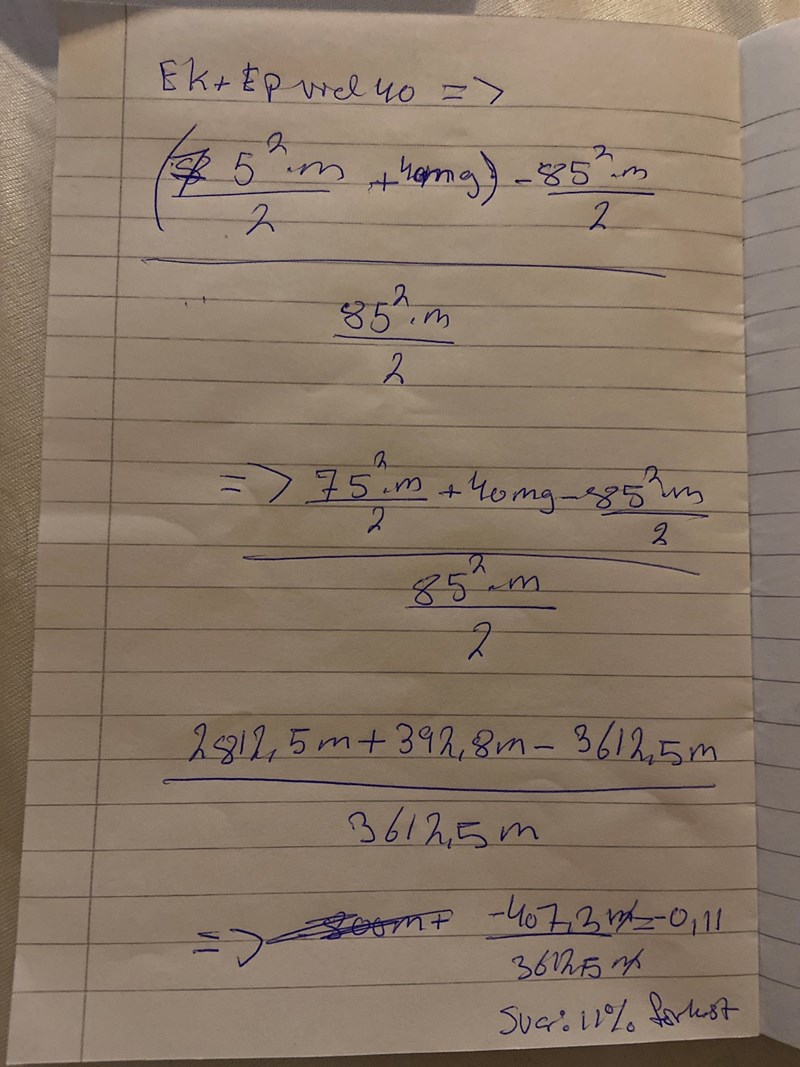 Ek + Ep vid 40 =>
(5²·m/2 + 40mg) - 85²·m/2
85²·m/2
=> 75²·m/2 + 40mg - 85²m/2
85²·m/2
2812,5m + 392,8m - 3612,5m
3612,5m
=> -800m+ -407,2m/3612,5m = -0,11
Svar: 11% förlust